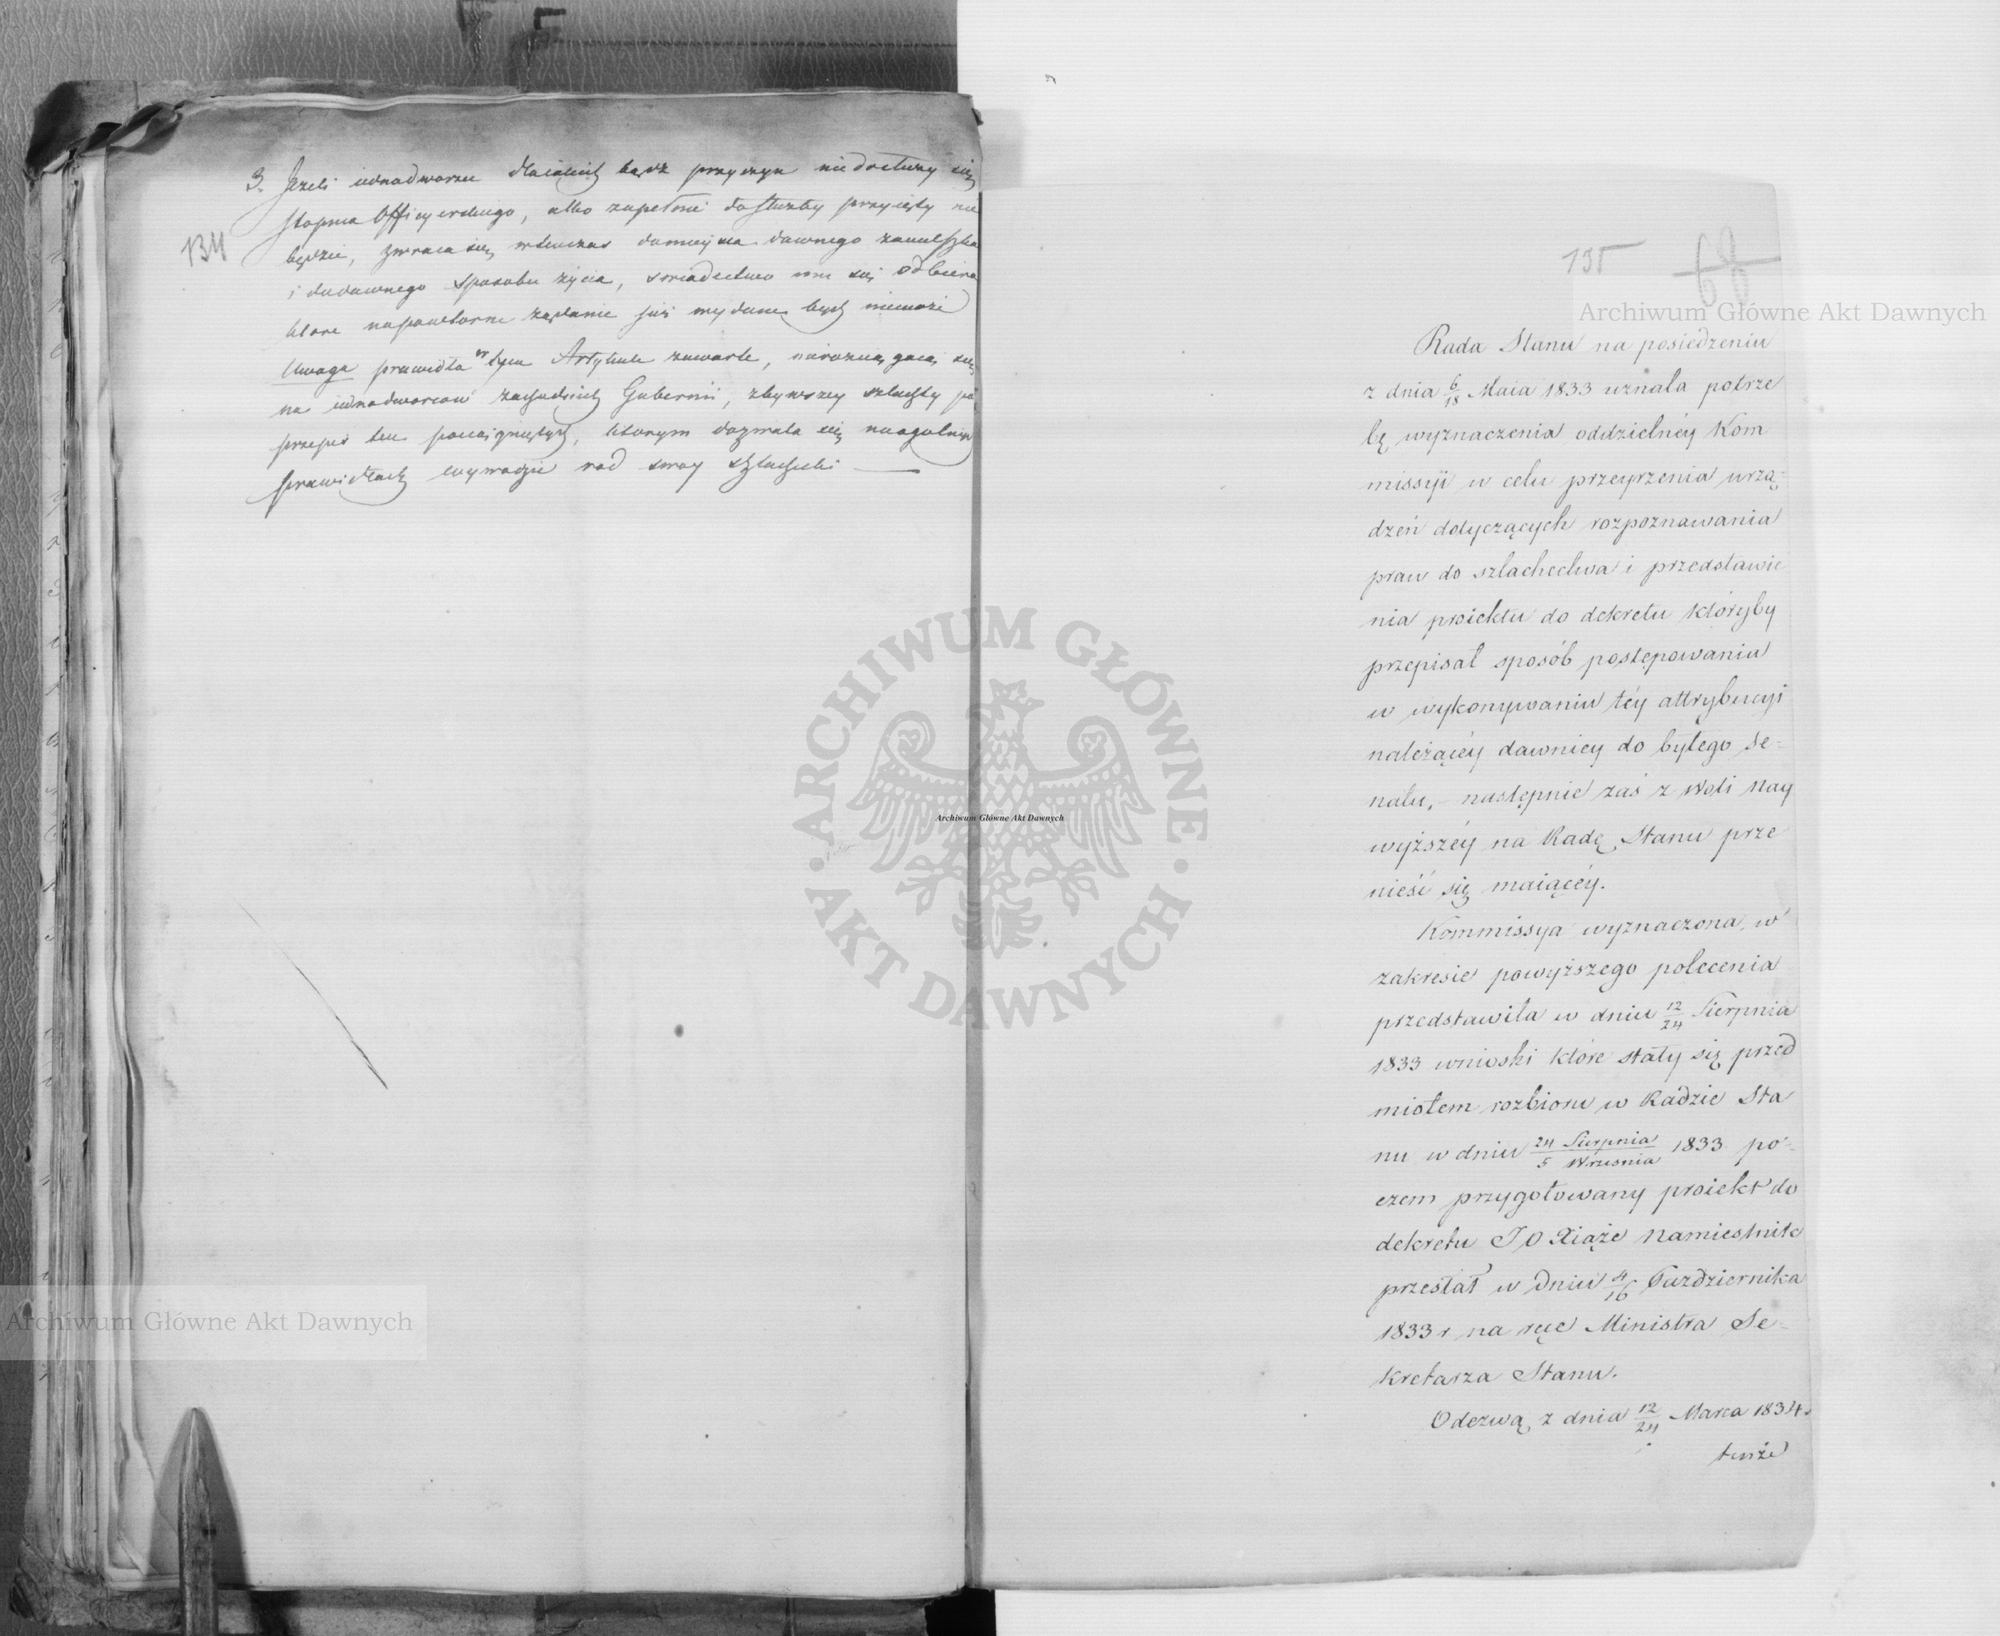 134
3. Jeżeli iednodworzec dla iakich bądź przyczyn niedosłuży się
stopnia Officyerskiego, albo zupełnie do służby przyięty nie
będzie, zwraca się wtenczas do mieysca dawnego zamieszka
i do dawnego sposobu życia, swiadectwo mu się odbiera
ktore na powtorne żądanie już wydane być niemoże
Uwaga prawidła w tym Artykule zawarte, nierozciągaią się
na iednodworcow zachodnich Gubernii, z bywszey szlachty po
przepis ten pociągniętych, ktorym dozwala się na ogolnych
prawidłach wywodzić rod swoy szlachecki
135
68
Archiwum Główne Akt Dawnych
Rada Stanu na posiedzeniu
z dnia 6/18 Maia 1833 uznała potrze
bę wyznaczenia oddzielnéy Kom
missyi w celu przeyrzenia urzą=
dzeń dotyczących rozpoznawania
praw do szlachectwa i przedstawie
nia proiektu do dekretu któryby
przepisał sposób postępowania
w wykonywaniu téy attrybucyi
należącéy dawniey do byłego Se=
natu, – następnie zaś z woli Nay
wyższéy na Radę Stanu prze
nieść się maiącéy.
Kommissya wyznaczona, w
zakresie powyższego polecenia
przedstawiła w dniu 12/24 Sierpnia
1833 wnioski które stały się przed
miotem rozbioru w Radzie Sta
nu w dniu 24 Sierpnia/5 Września 1833 po=
czem przygotowany proiekt do
dekretu JO Xiąże Namiestnik
przesłał w dniu 4/16 Października
1833 r na ręce Ministra Se=
kretarza Stanu.
Odezwą z dnia 12/24 Marca 1834
tenże
ARCHIWUM GŁÓWNE
AKT DAWNYCH
Archiwum Główne Akt Dawnych
Archiwum Główne Akt Dawnych